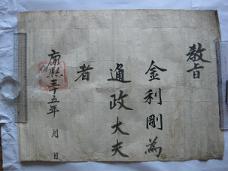 敎旨
金利剛為
通政大夫
者
康熙三十五年 月 日